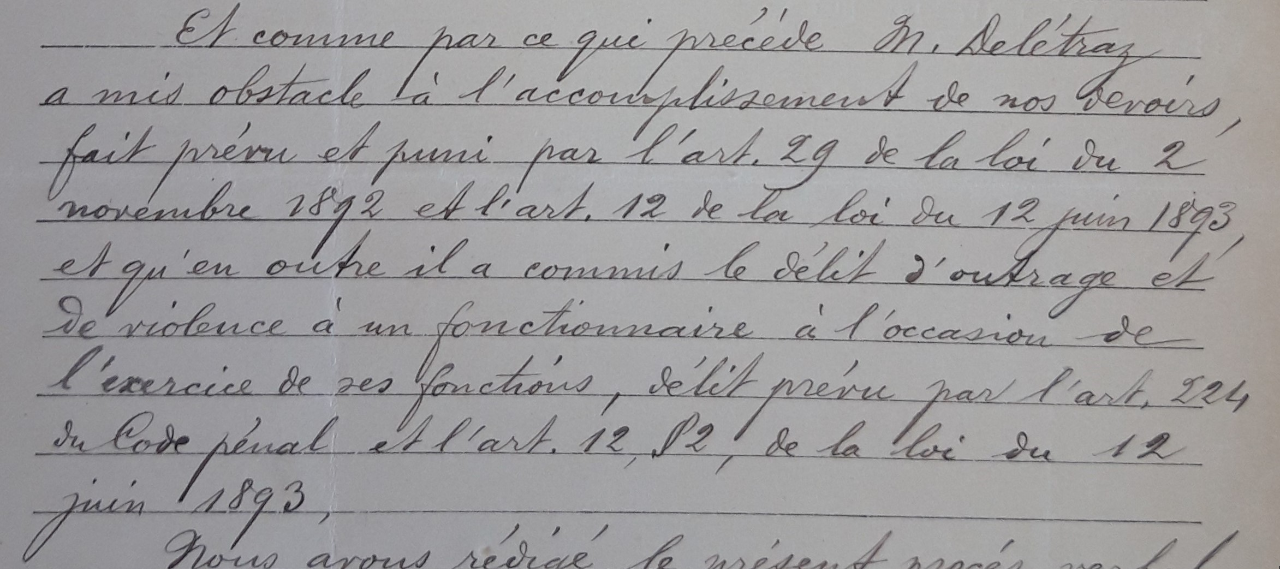 Et comme par ce qui précéde M. Delétraz
a mis obstacle à l'accomplissement de nos devoirs,
fait prévu et puni par l'art. 29 de la loi du 2
novembre 1892 et l'art. 12 de la loi du 12 juin 1893,
et qu'en outre il a commis le délit d'outrage et
de violence à un fonctionnaire à l'occasion de
l'exercice de ses fonctions, délit prévu par l'art. 224
du Code pénal et l'art. 12, §2, de la loi du 12
juin 1893,
Nous avons rédigé le présent procés